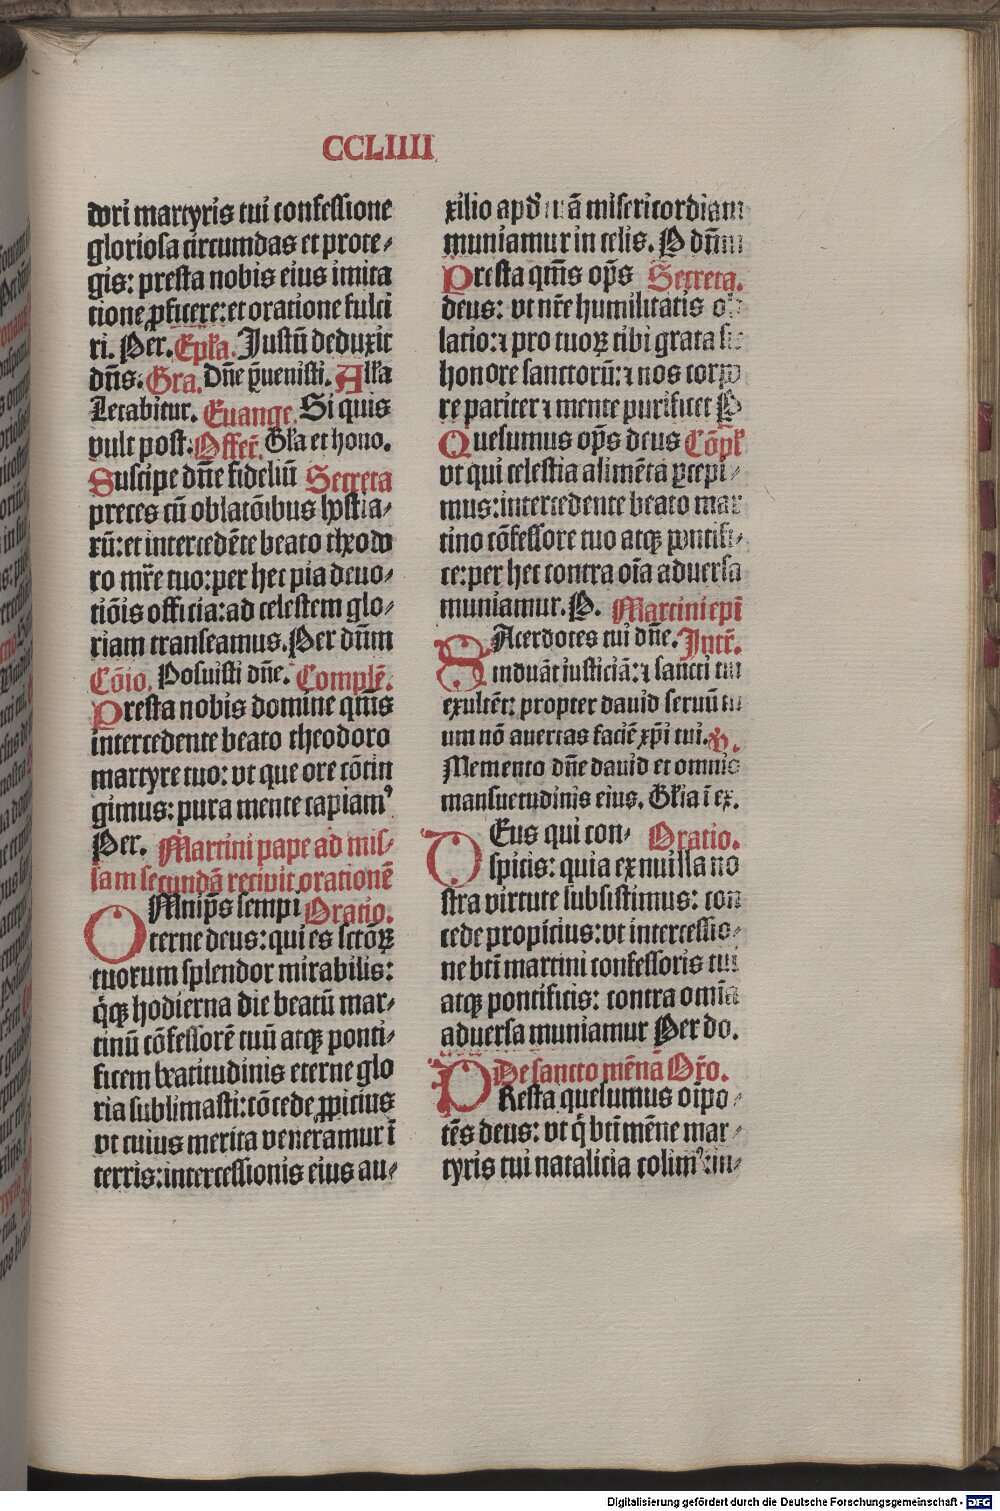 CCLIIII
dori martyris tui confessione
gloriosa circumdas et prote-
gis: presta nobis eius imita
tione ꝓficere: et oratione fulci
ri. Per. Epl̃a. Justū deduxit
dn̄s. Gra. Dn̄e p̄uenisti. All̃a
Letabitur. Euange. Si quis
vult post. Offer̄. Gl̃a et hono.
Suscipe dn̄e fideliū Secreta
preces cū oblatōibus hostia-
rū: et intercedēte beato theodo
ro mr̄e tuo: per hec pia deuo-
tiōis officia: ad celestem glo-
riam transeamus. Per dn̄m
Cōio. Posuisti dn̄e. Complē.
Presta nobis domine qm̄s
intercedente beato theodoro
martyre tuo: vt que ore cōtin
gimus: pura mente capiamꝰ
Per. Martini pape ad mis-
sam secundā recipit orationē
OMnip̄s sempi Oratio.
terne deus: qui es sctōꝝ
tuorum splendor mirabilis:
q̄qꝫ hodierna die beatū mar-
tinū cōfessorē tuū atqꝫ ponti-
ficem beatitudinis eterne glo
ria sublimasti: cōcede ꝓpicius
vt cuius merita veneramur ī
terris: intercessionis eius au-
xilio apd̓ tuā misericordiam
muniamur in celis. P dn̄m
Presta qm̄s op̄s Secreta.
deus: vt nr̄e humilitatis ob
latio: ⁊ pro tuoꝝ tibi grata sit
honore sanctorū: ⁊ nos corpo
re pariter ⁊ mente purificet P
Quesumus op̄s deus Cōpl̃
vt qui celestia alimēta ꝑcepi-
mus: intercedente beato mar
tino cōfessore tuo atqꝫ pontifi-
ce: per hec contra oīa aduersa
muniamur. P. Martini epī
SAcerdotes tui dn̄e. Intr̄.
induāt iusticiā: ⁊ sancti tui
exultēt: propter dauid seruū tu
um nō auertas faciē xp̄i tui. V.
Memento dn̄e dauid et omnis
mansuetudinis eius. Gl̃ia ī ex.
DEus qui con- Oratio.
spicis: quia ex nulla no
stra virtute subsistimus: con
cede propicius: vt intercessio-
ne bt̄i martini confessoris tui
atqꝫ pontificis: contra omīa
aduersa muniamur Per do.
De sancto mēna Or̄o.
PResta quesumus oīpo-
tēs deus: vt q̄ bt̄i mēne mar-
tyris tui natalicia colimꝰ: in-
Digitalisierung gefördert durch die Deutsche Forschungsgemeinschaft - DFG